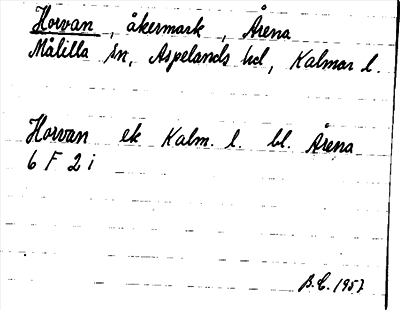 Horvan, åkermark, Årena
Målilla sn, Aspelands hd, Kalmar l.
Horvan ek Kalm. l. bl. Årena
6 F 2 i
B.E. 1957